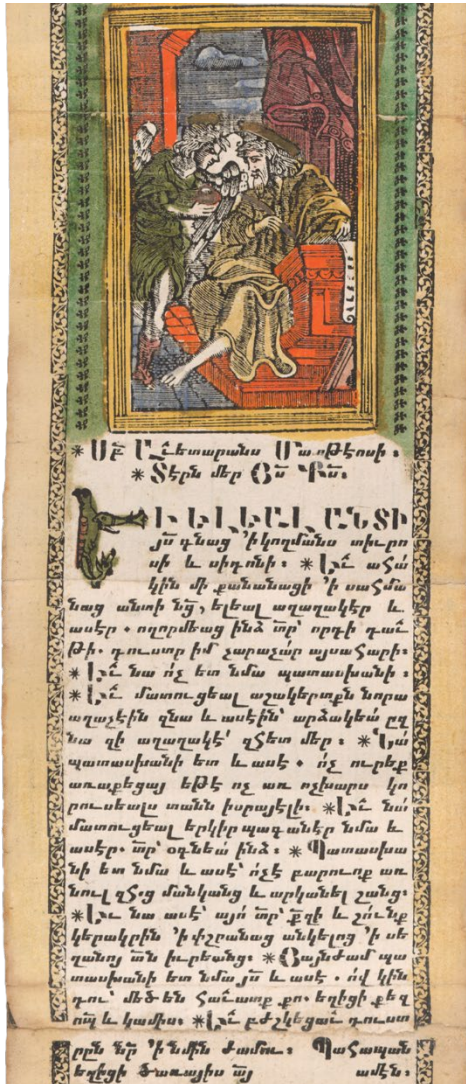 * Սբ Աւետարանս Մատթէոսի :
* Տէրն մեր Յս Քս :
ԵՒ ԵԼԵԱԼ ԱՆՏԻ
յս գնաց ՚ի կողմանս տիւրո
սի և սիդոնի : * Եւ ահա
կին մի քանանացի ՚ի սահմա
նաց անտի նց, ելեալ աղաղակէր և
ասէր . ողորմեաց ինձ տր՝ որդի դաւ
թի . դուստր իմ չարաչար այսահարի :
* Եւ նա ոչ ետ նմա պատասխանի :
* Եւ մատուցեալ աշակերտքն նորա
աղաչէին զնա և ասէին՝ արձակեա ըզ
նա զի աղաղակէ՛ զհետ մեր : * Նա
պատասխանի ետ և ասէ . ոչ ուրեք
առաքեցայ եթէ ոչ առ ոչխարս կո
րուսեալս տանն իսրայէլի : * Եւ նա
մատուցեալ երկիրպագանէր նմա և
ասէր . տր՝ օգնեա ինձ : * Պատասխա
նի ետ նմա և ասէ՝ ոչէ բարւոք առ
նուլ զհց մանկանց և արկանել շանց :
* Եւ նա ասէ՝ այո տր՝ քզի և շունք
կերակրին ՚ի փշրանաց անկելոց ՚ի սե
ղանոյ տն իւրեանց : * Յայնժամ պա
տասխանի ետ նմա յս և ասէ . ով կին
դու՝ մեծ են հաւատք քո . եղիցի քեզ
որպ և կամիս : * Եւ բժշկեցաւ դուստ
րըն նր ՚ի նմին ժամու : Պահապան
եղիցի ծառայիս այ ամէն :